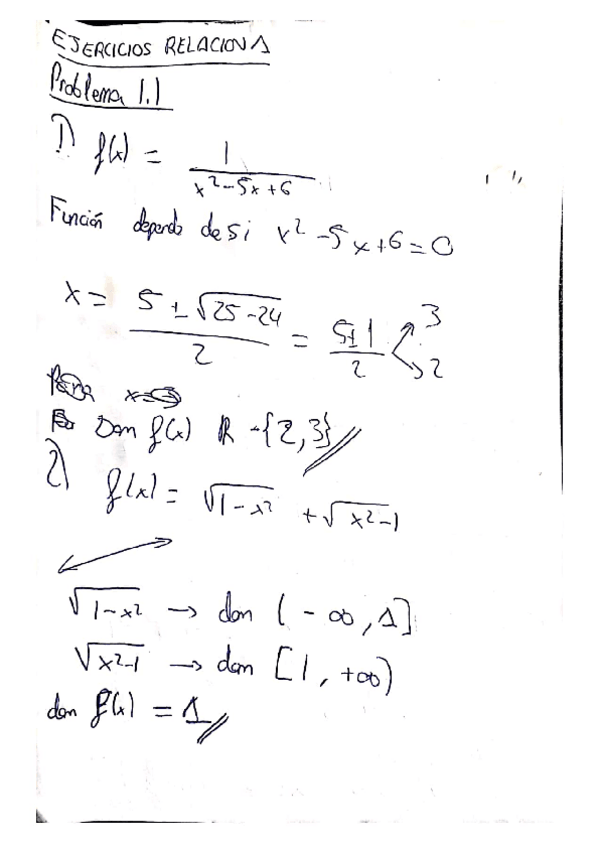 EJERCICIOS RELACION 1
Problema 1.1
1) f(x) = 1 / (x² - 5x + 6)
Función depende de si x² - 5x + 6 = 0
x = (5 ± √(25 - 24)) / 2 = (5 ± 1) / 2 3
2
Dom f(x) ℝ - {2,3}
2) f(x) = √(1 - x²) + √(x² - 1)
√(1 - x²) → dom (-∞, 1]
√(x² - 1) → dom [1, +∞)
dom f(x) = 1